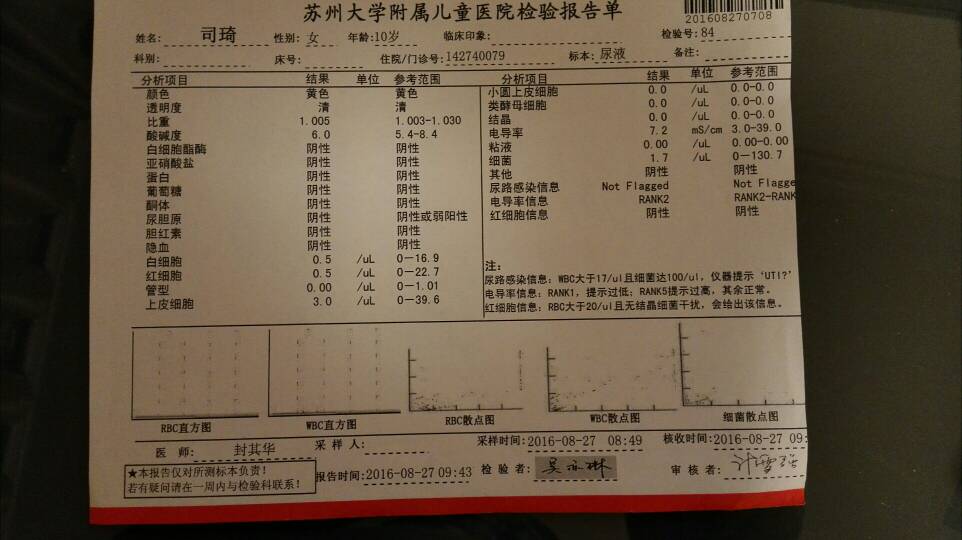 苏州大学附属儿童医院检验报告单
201608270708
姓名: 司琦 性别: 女 年龄:10岁 临床印象: 检验号: 84
科别: 床号: 住院/门诊号: 142740079 标本: 尿液 备注:
分析项目 结果 单位 参考范围
颜色 黄色 黄色
透明度 清 清
比重 1.005 1.003-1.030
酸碱度 6.0 5.4-8.4
白细胞酯酶 阴性 阴性
亚硝酸盐 阴性 阴性
蛋白 阴性 阴性
葡萄糖 阴性 阴性
酮体 阴性 阴性
尿胆原 阴性 阴性或弱阳性
胆红素 阴性 阴性
隐血 阴性 阴性
白细胞 0.5 /uL 0-16.9
红细胞 0.5 /uL 0-22.7
管型 0.00 /uL 0-1.01
上皮细胞 3.0 /uL 0-39.6
分析项目 结果 单位 参考范围
小圆上皮细胞 0.0 /uL 0.0-0.0
类酵母细胞 0.0 /uL 0.0-0.0
结晶 0.0 /uL 0.0-0.0
电导率 7.2 mS/cm 3.0-39.0
粘液 0.00 /uL 0.00-0.00
细菌 1.7 /uL 0-130.7
其他 阴性 阴性
尿路感染信息 Not Flagged Not Flagge
电导率信息 RANK2 RANK2-RANK
红细胞信息 阴性 阴性
注:
尿路感染信息: WBC大于17/ul且细菌达100/ul, 仪器提示‘UTI?’
电导率信息: RANK1, 提示过低; RANK5提示过高, 其余正常。
红细胞信息: RBC大于20/ul且无结晶细菌干扰, 会给出该信息。
RBC直方图 WBC直方图 RBC散点图 WBC散点图 细菌散点图
医 师: 封其华 采 样 人: 采样时间:2016-08-27 08:49 核收时间:2016-08-27 09:
★本报告仅对所测标本负责!
若有疑问请在一周内与检验科联系!
报告时间:2016-08-27 09:43 检 验 者: 审 核 者: